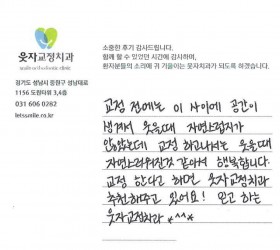 웃자교정치과
smile orthodontic clinic
경기도 성남시 중원구 성남대로
1156 도원타워 3,4층
031 606 0282
letssmile.co.kr
소중한 후기 감사드립니다.
함께 할 수 있었던 시간에 감사하며,
환자분들의 소리에 귀 기울이는 웃자치과가 되도록 하겠습니다.
교정 전에는 이 사이에 공간이
생겨서 웃을때 자연스럽지가
않았는데 교정 하고나서는 웃을때
자연스러워진것 같아서 행복합니다.
교정 한다고 하면 웃자교정치과
추천해주고 있어요! 믿고 하는
웃자교정치과 *^^*